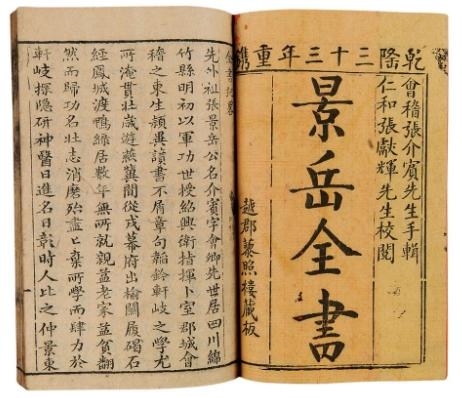 乾隆三十三年重鐫
會稽張介賓先生手輯
仁和張獻輝先生校閱
景岳全書
越郡藜照樓藏板
先外祖張景岳公名介賓字會卿先世居四川綿
竹縣明初以軍功世授紹興衛指揮卜室郡城會
稽之東生頴異讀書不屑章句韜鈐軒岐之學尤
所淹貫壯歲遊燕冀間從戎幕府出榆關履碣石
經鳳城渡鴨綠居數年無所就親益老家益貧翻
然而歸功名壯志消磨殆盡〻棄所學而肆力於
軒岐探隱研神醫日進名日彰時人比之仲景東